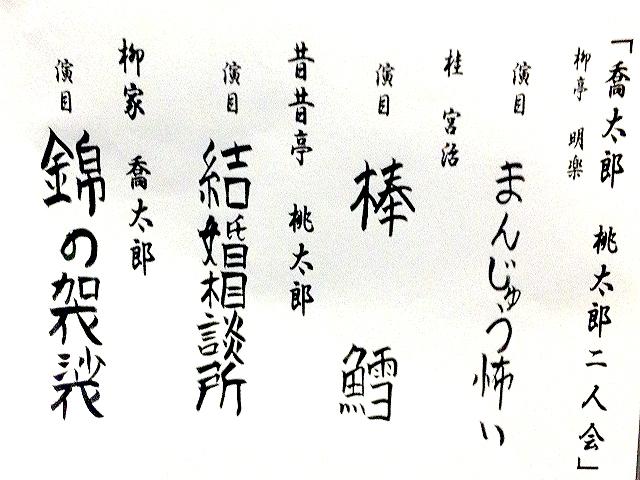 「喬太郎 桃太郎二人会」
柳亭 明楽
演目 まんじゅう怖い
桂 宮治
演目 棒鱈
昔昔亭 桃太郎
演目 結婚相談所
柳家 喬太郎
演目 錦の袈裟